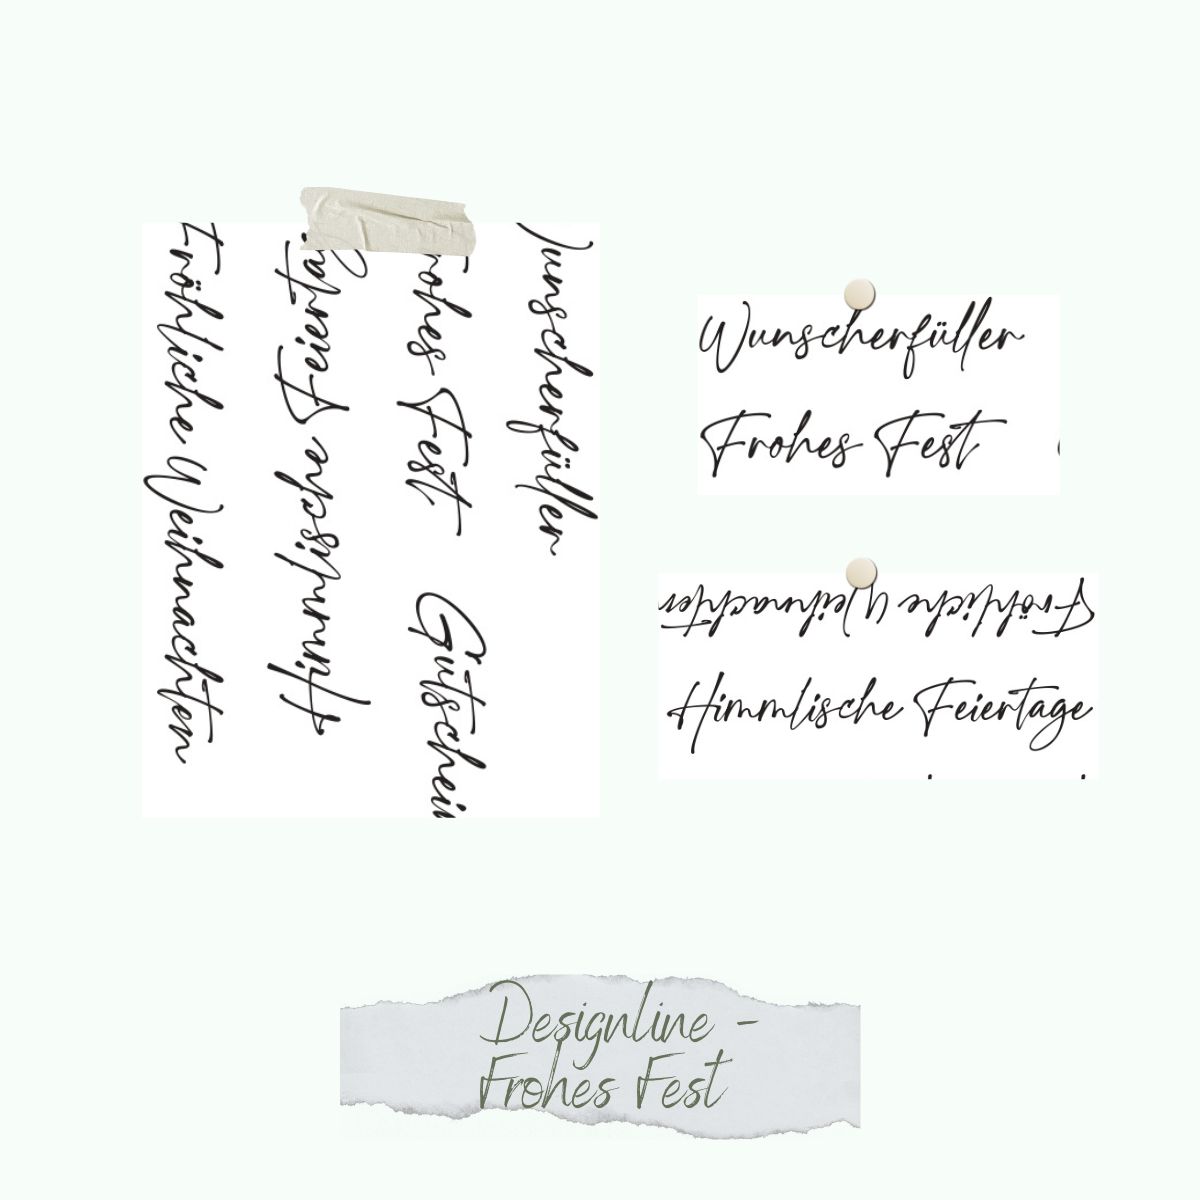 Wunscherfüller
Frohes Fest Gutschein
Himmlische Feiertage
Fröhliche Weihnachten
Wunscherfüller
Frohes Fest
Fröhliche Weihnachten
Himmlische Feiertage
Designline -
Frohes Fest